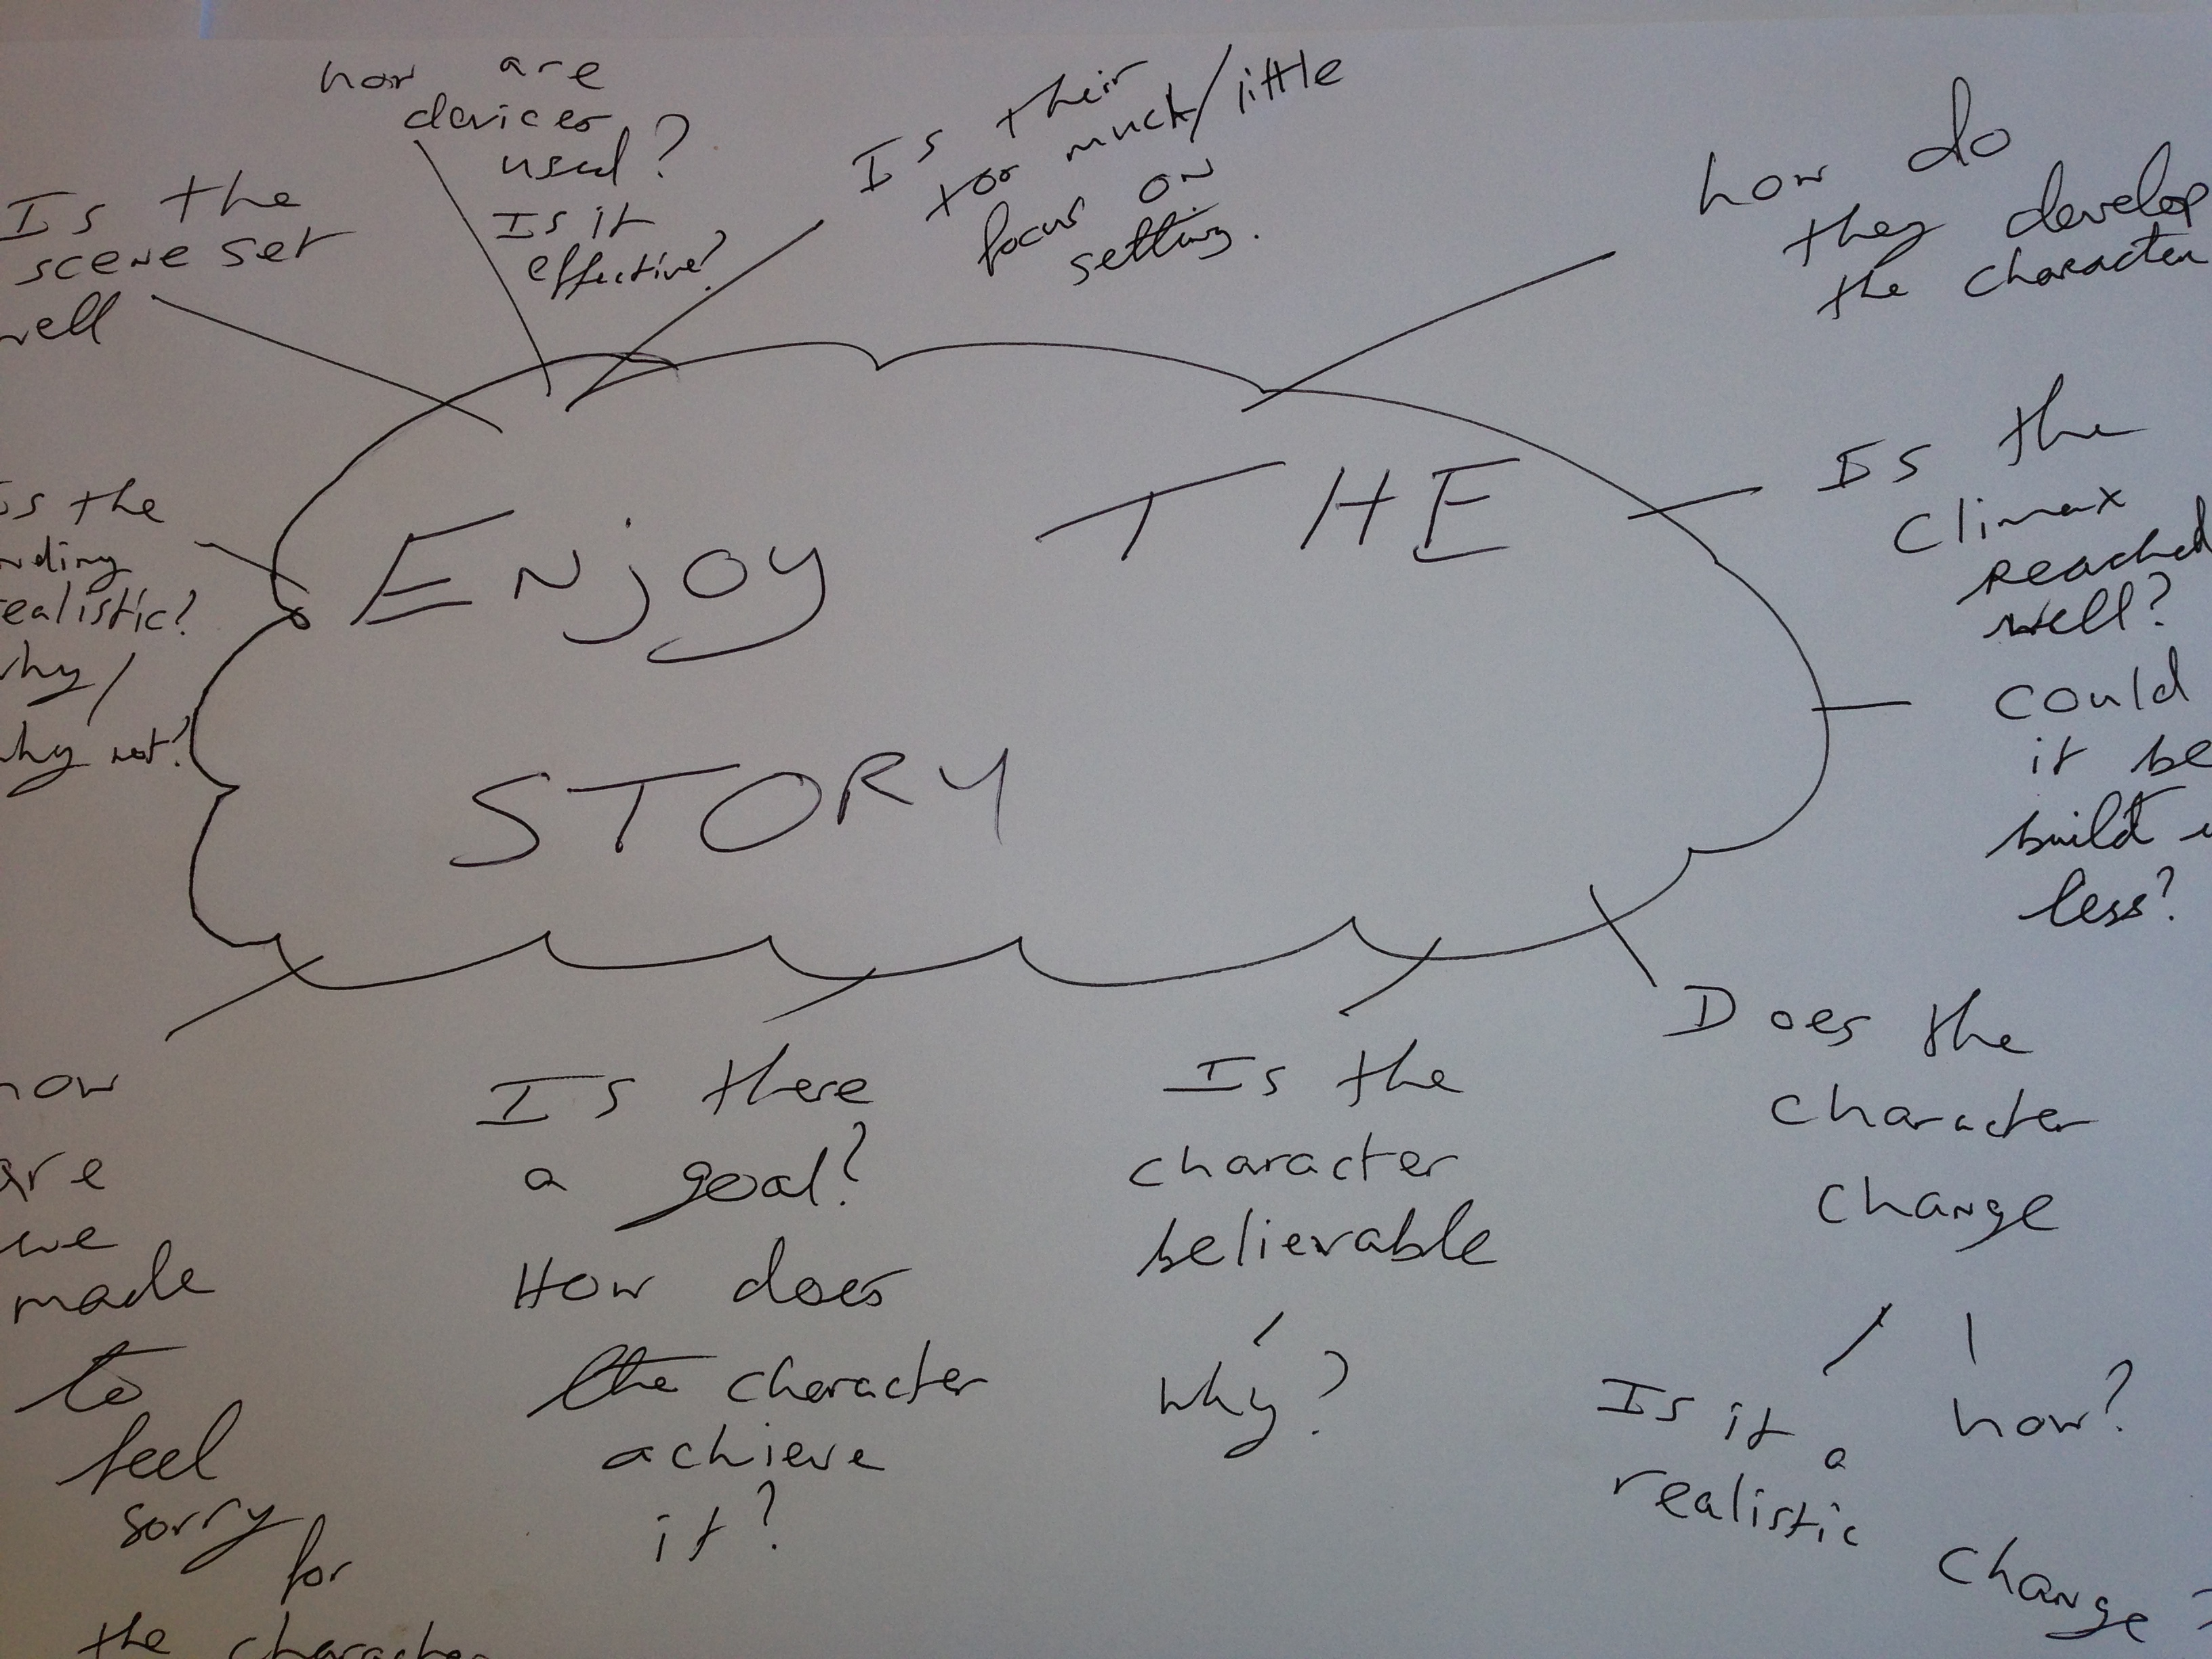 how are
devices
used?
Is it
effective?
Is their
too much/little
focus on
setting.
how do
they develop
the character
Is the
scene set
well
Is the
climax
reached
well?
could
it be
build
less?
ENjOY THE
STORY
is the
nding
ealistic?
why/
why not?
how
are
we
made
to
feel
sorry
for
the character
Is there
a goal?
How does
the character
achieve
it?
Is the
character
believable
why?
Does the
character
change
Is it a
realistic
change?
how?